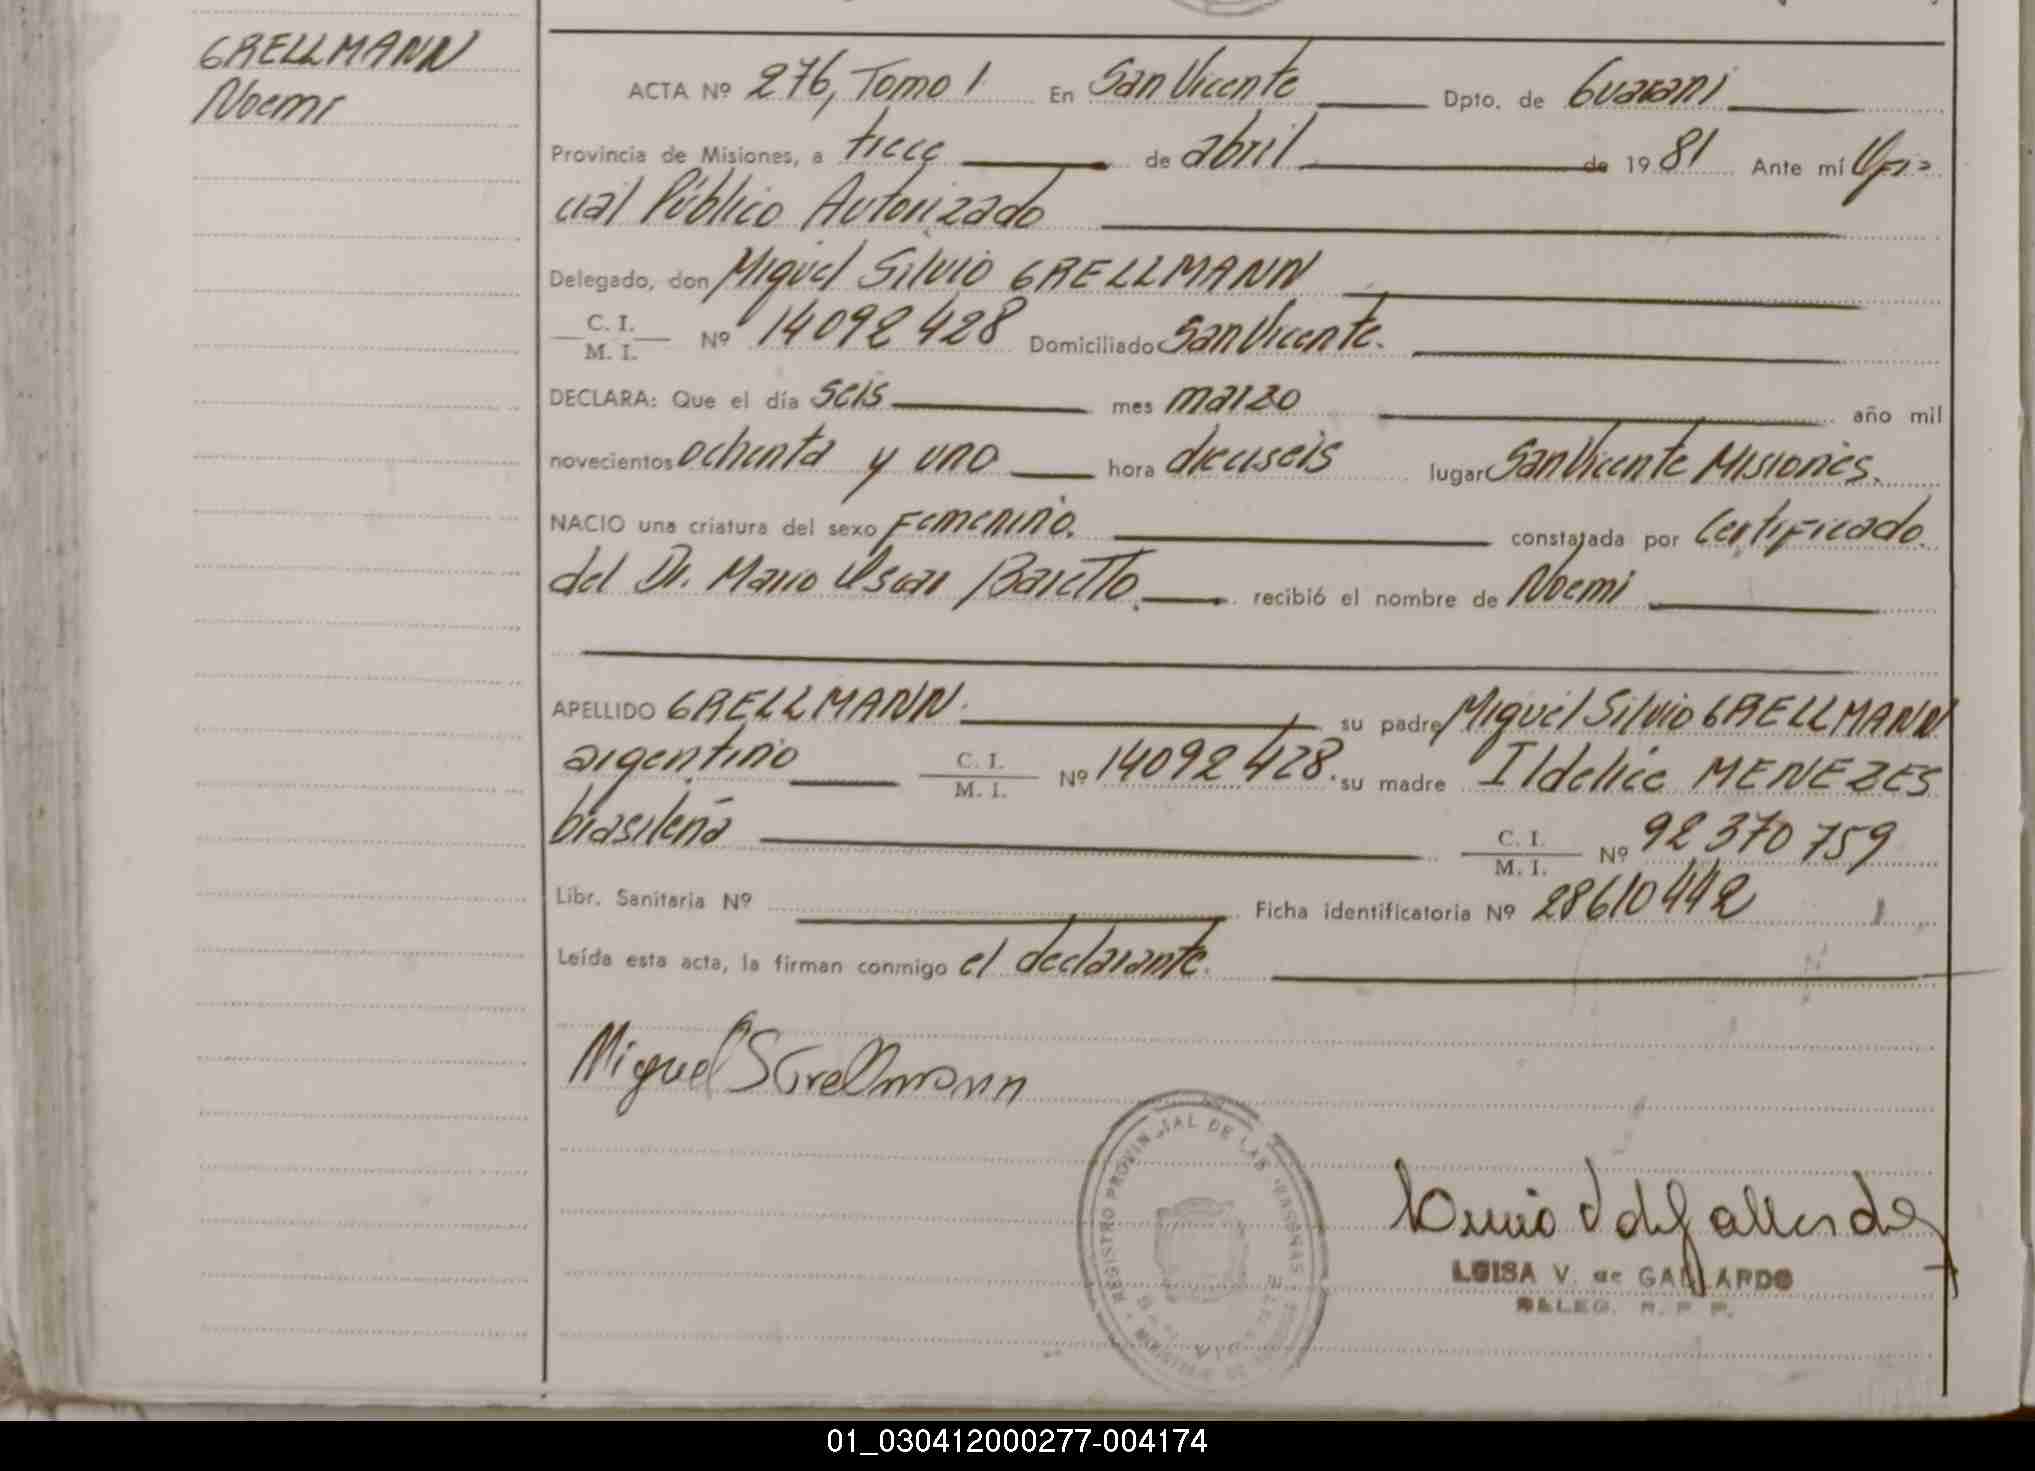 GRELLMANN
Noemi
ACTA Nº 276, Tomo 1 En San Vicente Dpto. de Guarani
Provincia de Misiones, a trece de abril de 1981 Ante mí Ofi=
cial Público Autorizado
Delegado, don Miguel Silvio GRELLMANN
C. I. / M. I. Nº 14092428 Domiciliado San Vicente.
DECLARA: Que el día seis mes marzo año mil
novecientos ochenta y uno hora dieciseis lugar San Vicente Misiones.
NACIO una criatura del sexo Femenino. constatada por Certificado
del Dr. Mario Oscar Baretto. recibió el nombre de Noemi
APELLIDO GRELLMANN. su padre Miguel Silvio GRELLMANN
argentino C. I. / M. I. Nº 14092428. su madre Ildelice MENEZES
brasileña C. I. / M. I. Nº 92370759
Libr. Sanitaria Nº Ficha identificatoria Nº 28610442
Leída esta acta, la firman conmigo el declarante.
Miguel S Grellmann
REGISTRO PROVINCIAL DE LAS PERSONAS
LUISA V. de GALLARDO
DELEG. R. P. P.
01_030412000277-004174